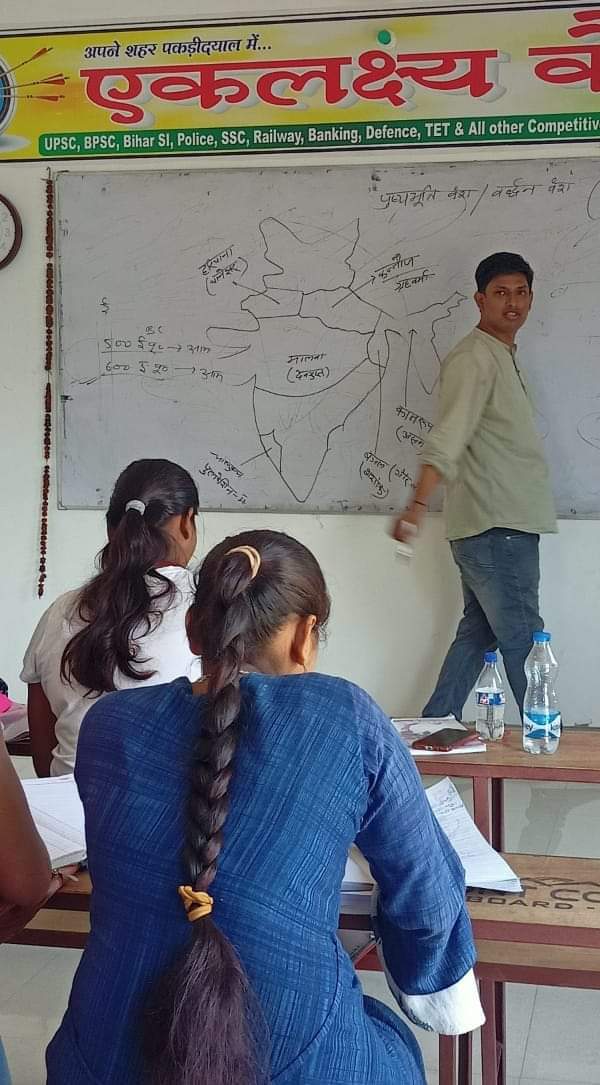 अपने शहर पकड़ीदयाल में...
एकलक्ष्य कै
UPSC, BPSC, Bihar SI, Police, SSC, Railway, Banking, Defence, TET & All other Competitive
पुष्यभूति वंश / वर्द्धन वंश
हरियाणा
(थानेश्वर)
कन्नौज
ग्रहवर्मा
ई
BC
500 ई पू० → आम
600 ई पू० → आम
मालवा
(देवगुप्त)
कामरूप
बंगाल (गौड़)
(शशांक)
चालुक्य
पुलकेशिन-II
BOARD